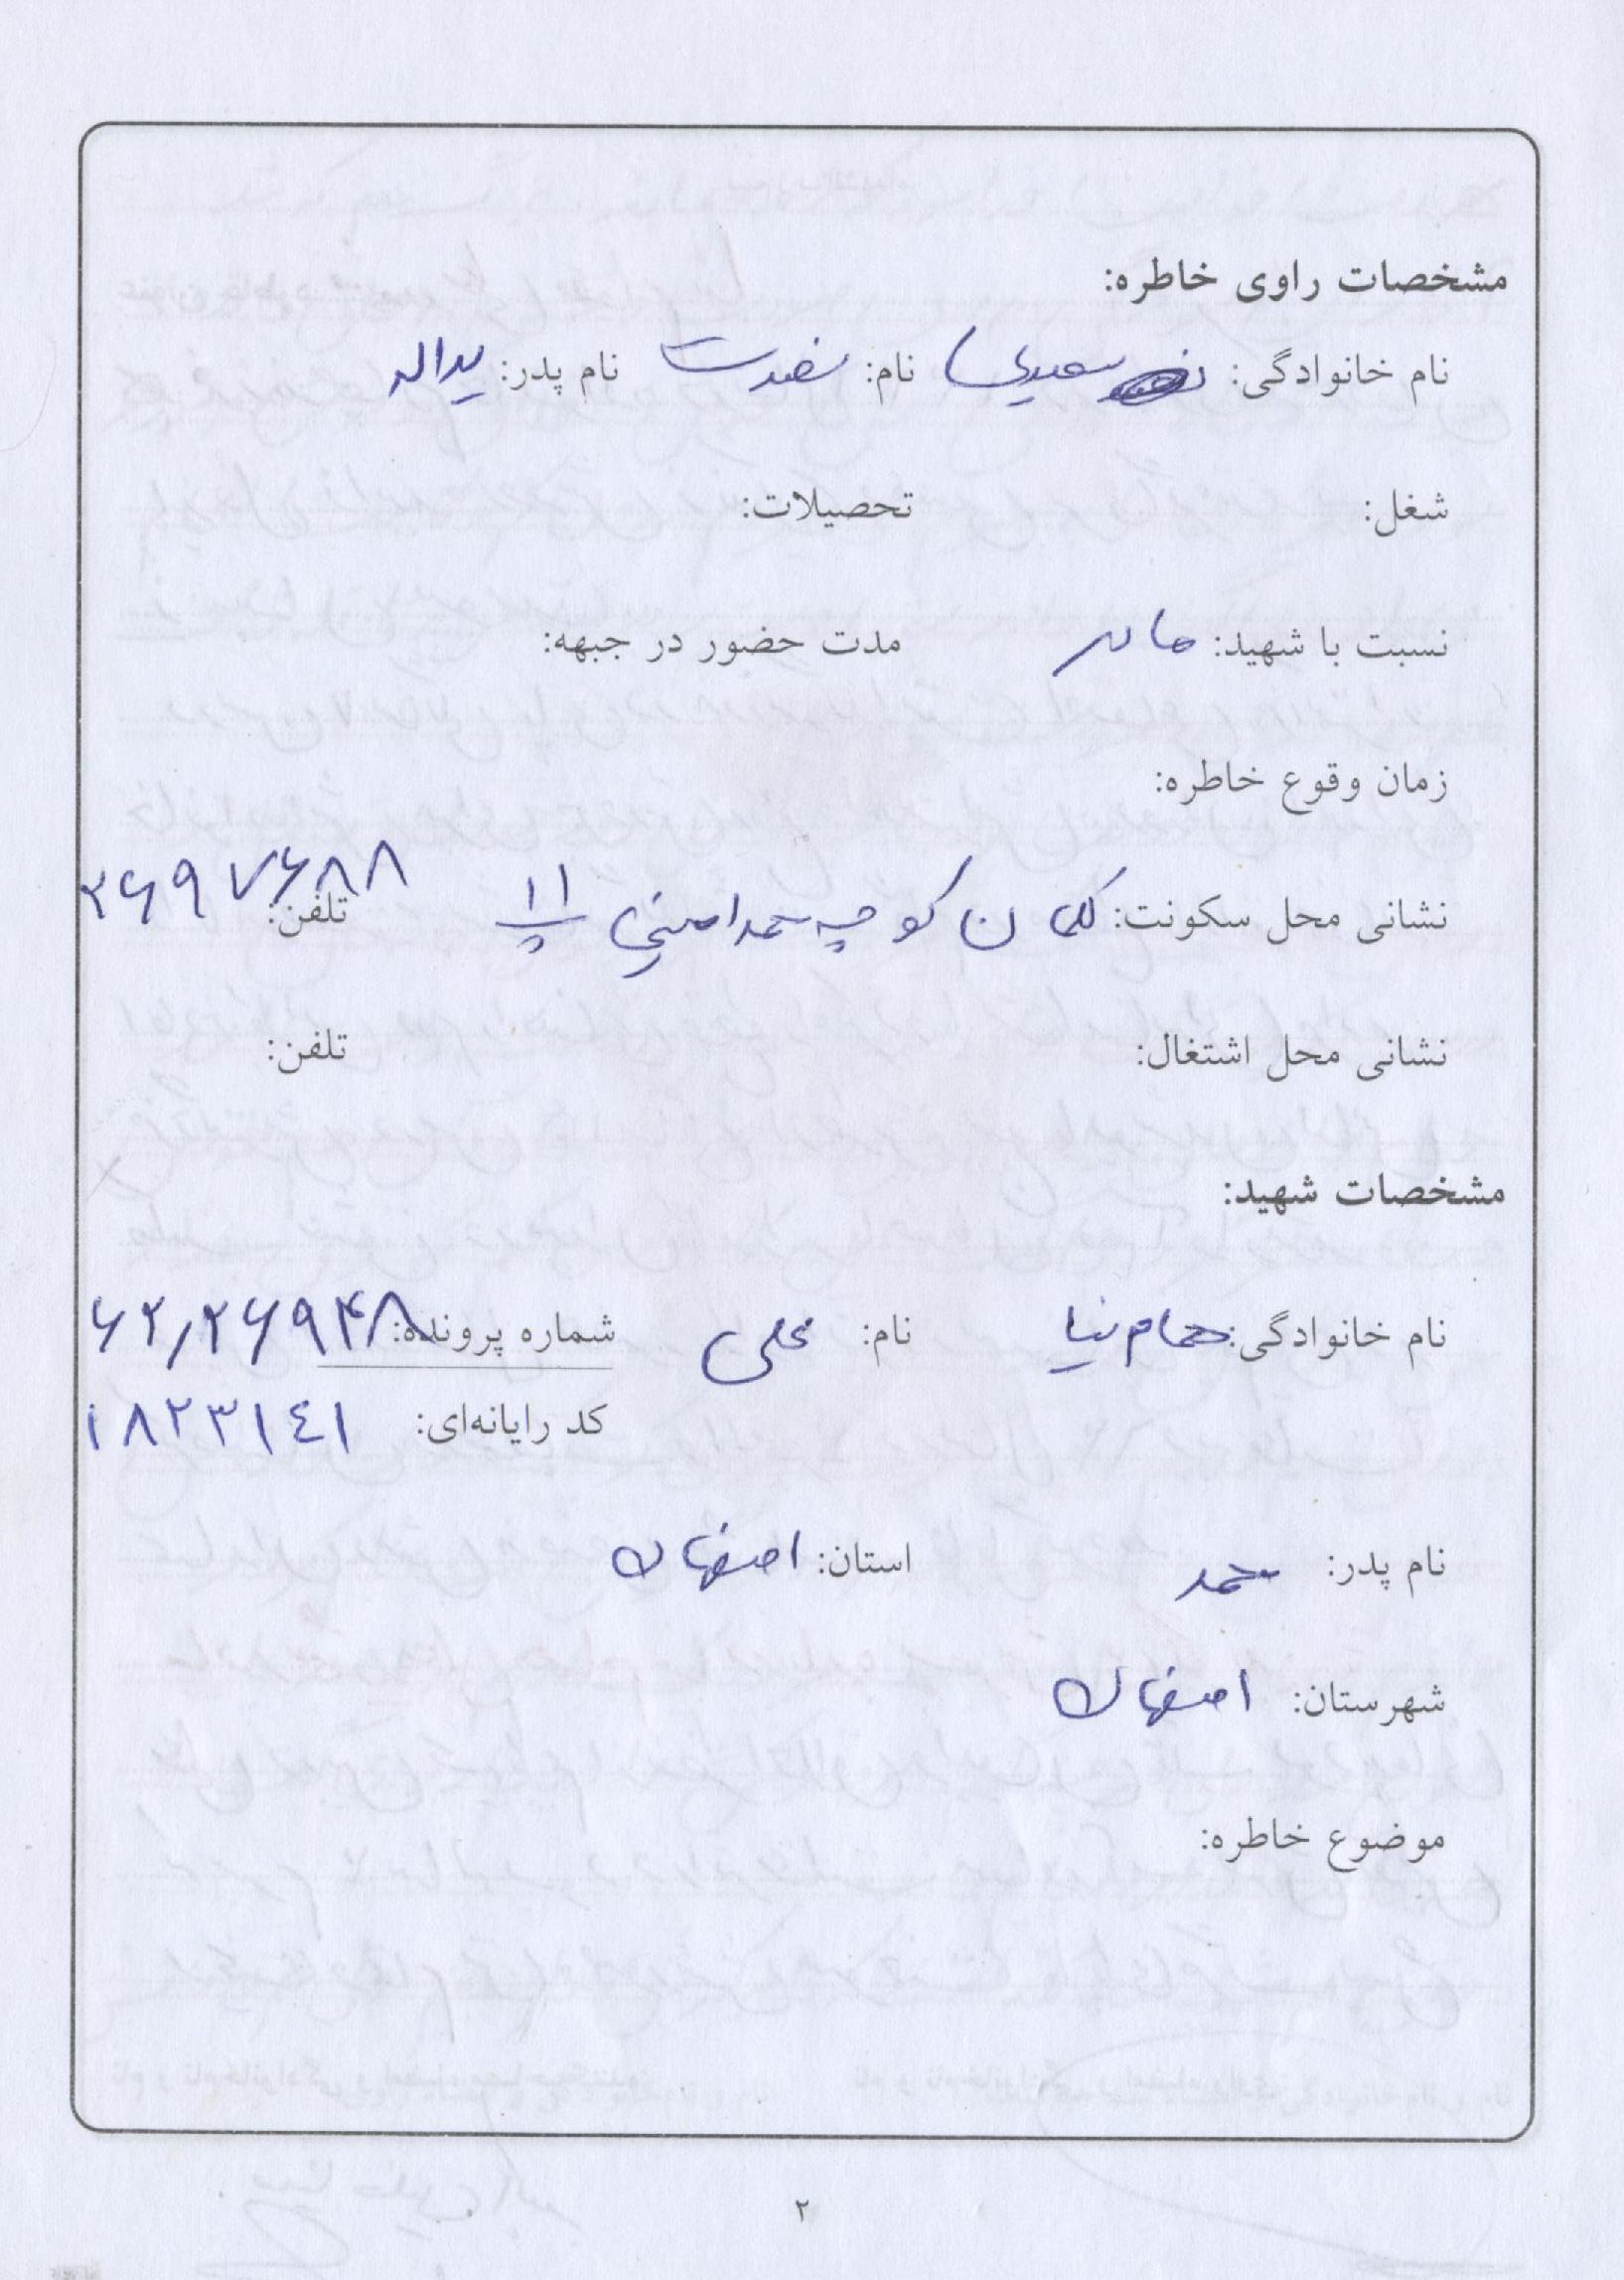 مشخصات راوی خاطره:
نام خانوادگی: سعیدی نام: نصرت نام پدر: یداله
شغل: تحصیلات:
نسبت با شهید: مادر مدت حضور در جبهه:
زمان وقوع خاطره:
نشانی محل سکونت: کوچه محمد امینی پ ۱۱ تلفن: ۲۶۹۷۶۸۸
نشانی محل اشتغال: تلفن:
مشخصات شهید:
نام خانوادگی: همام نیا نام: علی شماره پرونده: ۶۲٫۲۶۹۴۸
کد رایانه‌ای: ۱۸۲۳۱۴۱
نام پدر: محمد استان: اصفهان
شهرستان: اصفهان
موضوع خاطره:
۲